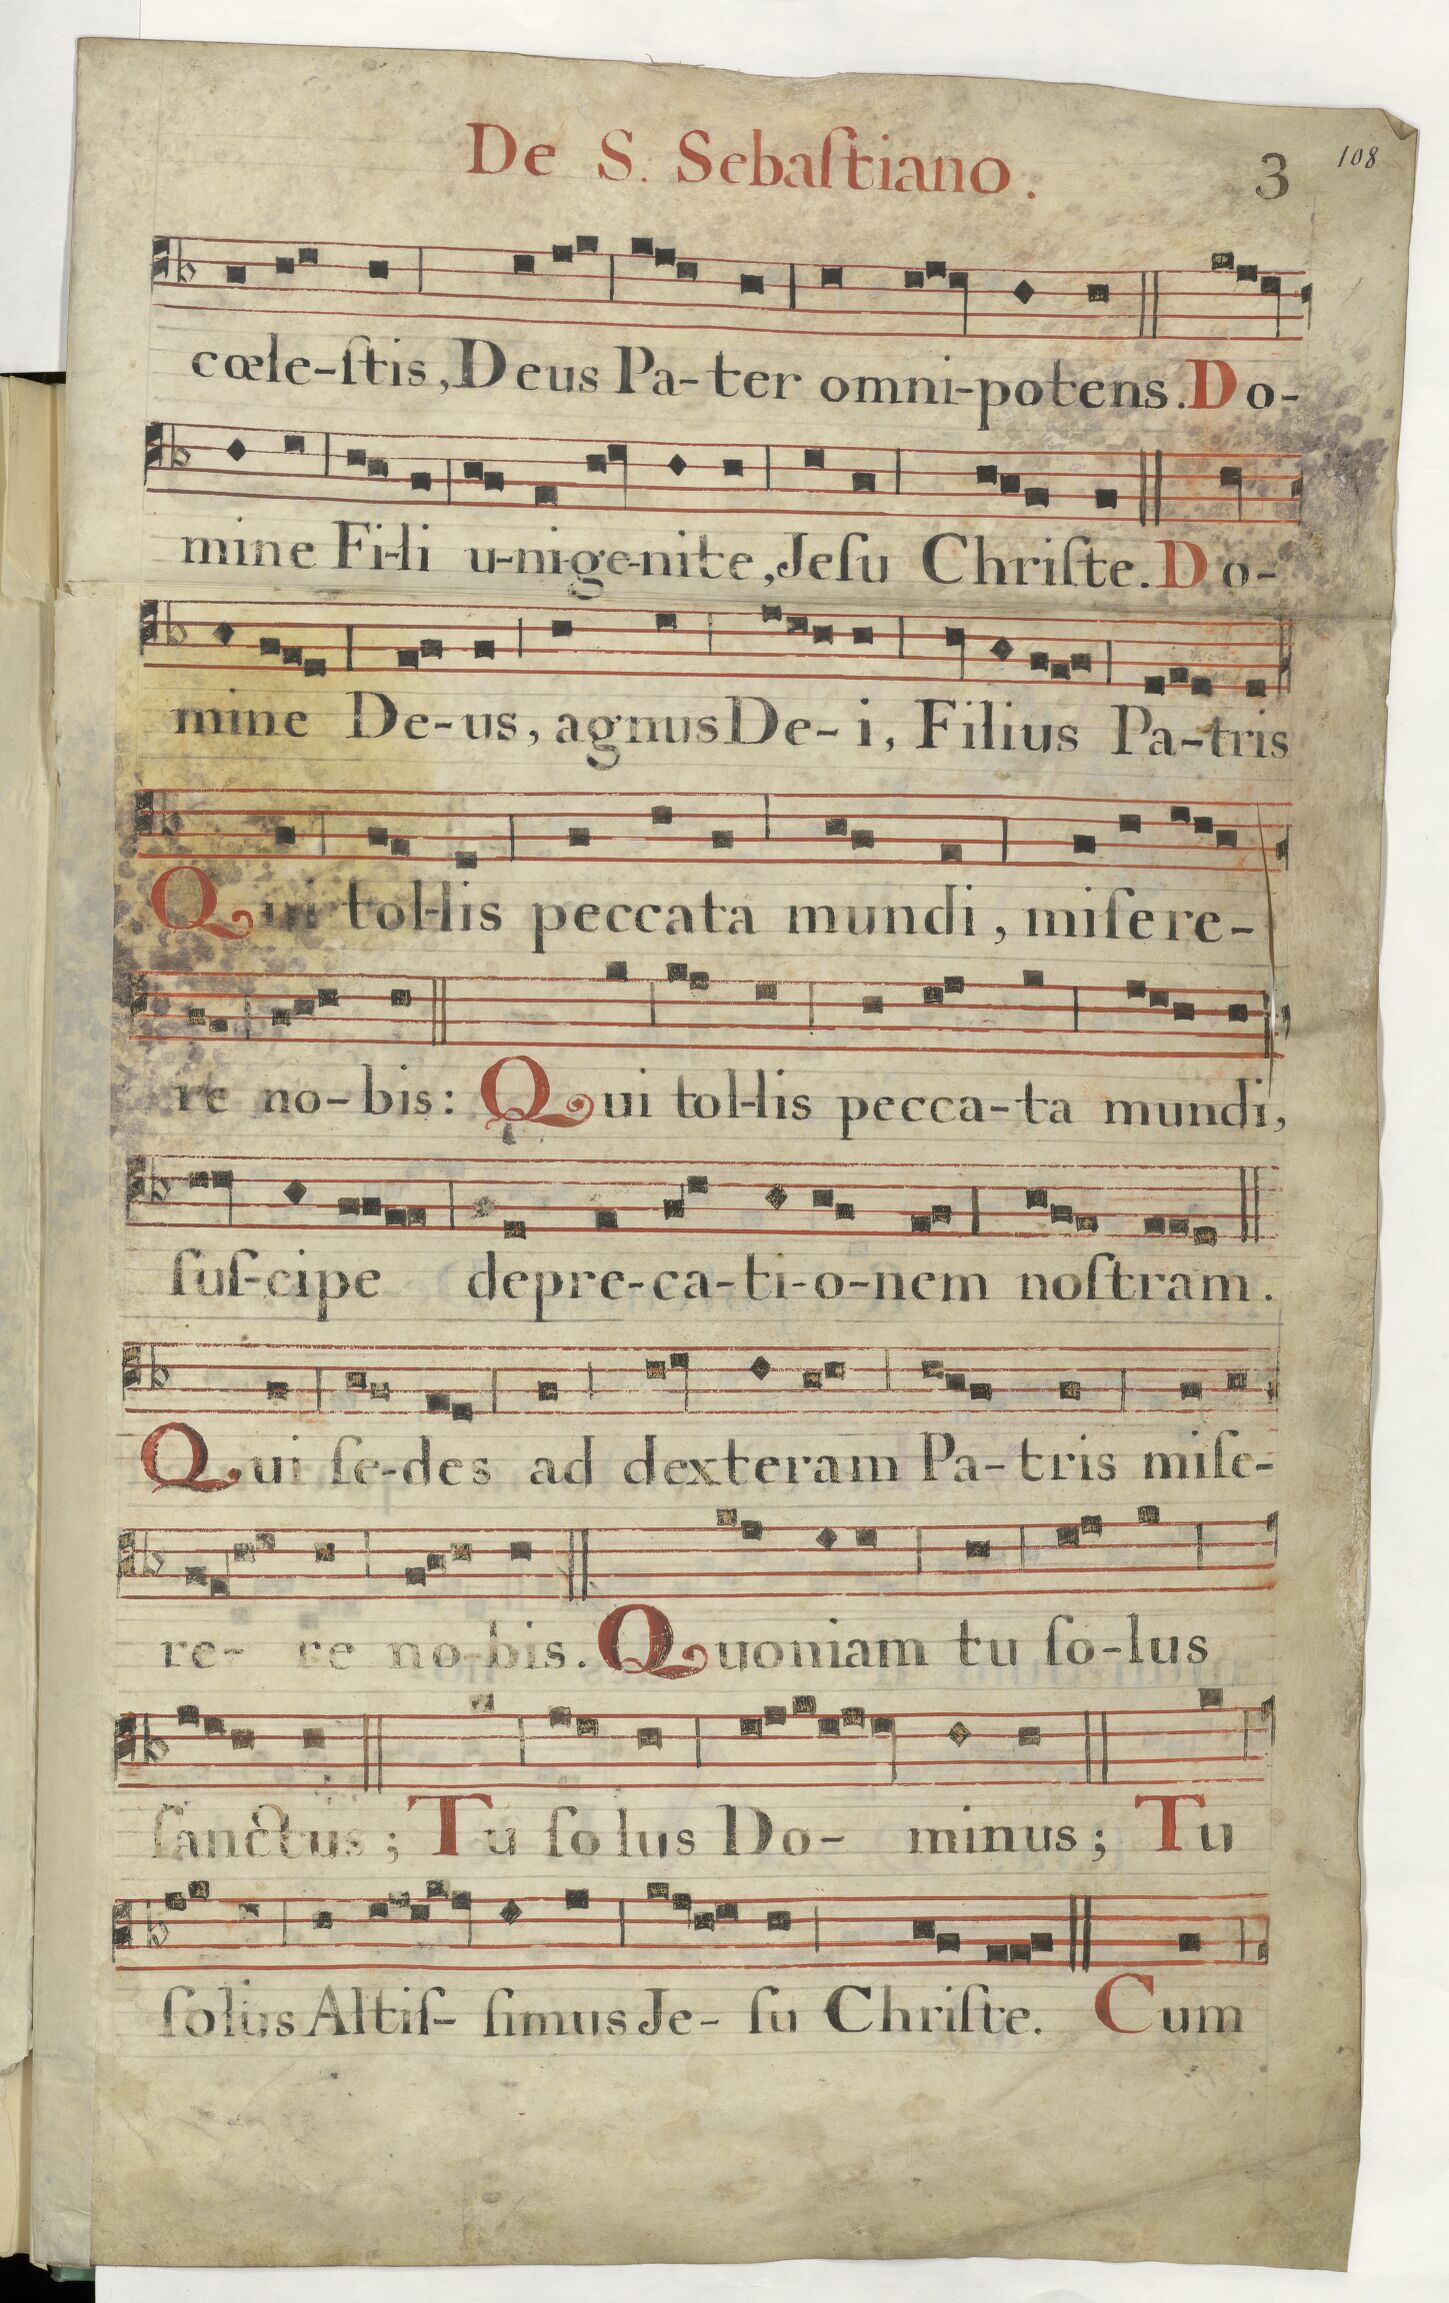 De S. Sebaſtiano. 3 108
cœle-ſtis, Deus Pa-ter omni-potens. Do-
mine Fi-li u-ni-ge-nite, Jeſu Chriſte. Do-
mine De-us, agnus De-i, Filius Pa-tris
Qui tol-lis peccata mundi, miſere-
re no-bis: Qui tol-lis pecca-ta mundi,
ſuſ-cipe depre-ca-ti-o-nem noſtram.
Qui ſe-des ad dexteram Pa-tris miſe-
re- re no-bis. Quoniam tu ſo-lus
ſanctus; Tu ſolus Do- minus; Tu
ſolus Altiſ- ſimus Je- ſu Chriſte. Cum